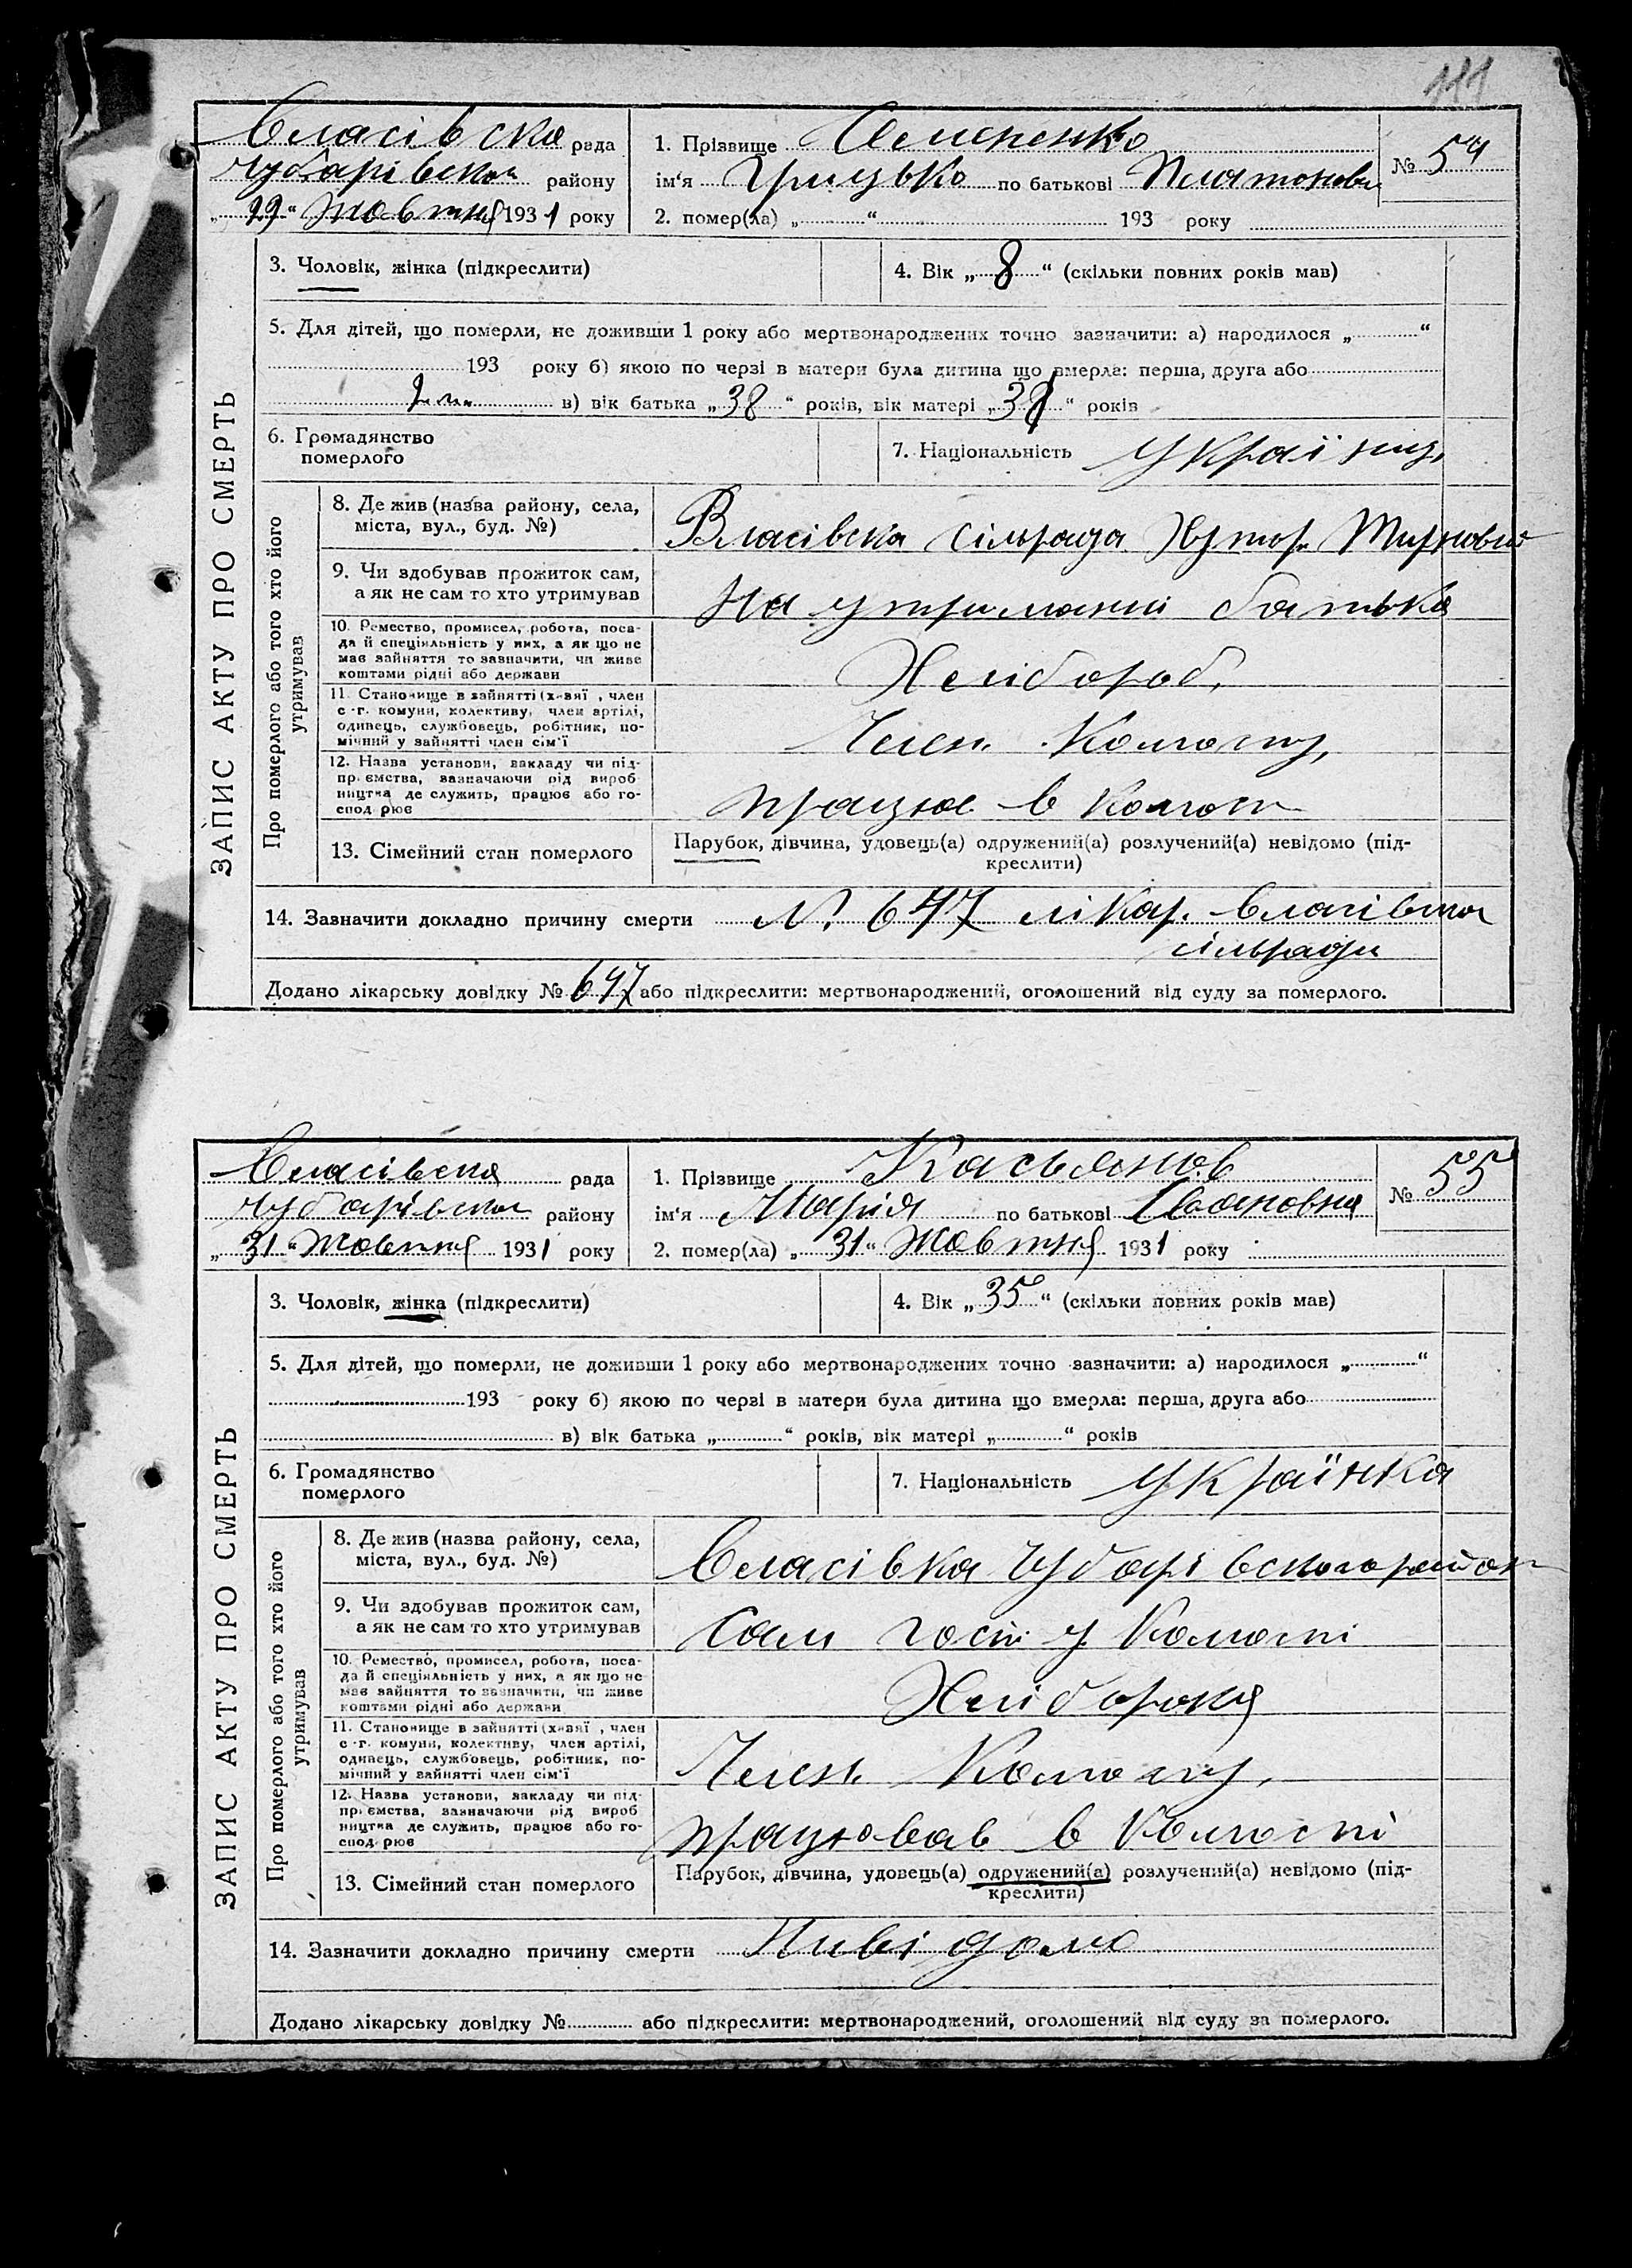 111
Власівска рада
Чубарівског району
„ 29 “ Жовтня 1931 року
1. Прізвище Семененко
ім'я Грицько по батькові Платонови
№ 54
2. помер(ла) „ “ 193 року
3. Чоловік, жінка (підкреслити)
4. Вік „ 8 “ (скільки повних років мав)
5. Для дітей, що померли, не доживши 1 року або мертвонароджених точно зазначити: а) народилося „ “
193 року б) якою по черзі в матери була дитина що вмерла: перша, друга або
в) вік батька „ 38 “ років, вік матері „ 38 “ років
6. Громадянство
померлого
7. Національність Українц.
ЗАПИС АКТУ ПРО СМЕРТЬ
Про померлого або того хто його
утримував
8. Де жив (назва району, села,
міста, вул., буд. №)
Власівска сільрада Хутор. Тирновий
9. Чи здобував прожиток сам,
а як не сам то хто утримував
На утриманні батька
10. Ремество, промисел, робота, поса-
да й спеціяльність у них, а як що не
має зайняття то зазначити, чи живе
коштами рідні або держави
Хлібороб.
11. Становище в зайнятті (х-вяї , член
с.-г. комуни, колективу, член артілі,
одинець, службовець, робітник, по-
мічний у зайнятті член сім'ї
Член. Колгоспу,
12. Назва установи, закладу чи під-
пр.ємства, зазначаючи рід вироб
ництва де служить, працює або го-
спод рює
працює в колгосп
13. Сімейний стан померлого
Парубок, дівчина, удовець(а) одружений(а) розлучений(а) невідомо (під-
креслити)
14. Зазначити докладно причину смерти N. 647 лікар. Власівской
сільради
Додано лікарську довідку № 647 або підкреслити: мертвонароджений, оголошений від суду за померлого.
Власівска рада
Чубарівског району
„ 31 “ Жовтня 1931 року
1. Прізвище Касьянов
ім'я Марія по батькові Івановна
№ 55
2. помер(ла) „ 31 “ Жовтня 1931 року
3. Чоловік, жінка (підкреслити)
4. Вік „ 35 “ (скільки повних років мав)
5. Для дітей, що померли, не доживши 1 року або мертвонароджених точно зазначити: а) народилося „ “
193 року б) якою по черзі в матери була дитина що вмерла: перша, друга або
в) вік батька „ “ років, вік матері „ “ років
6. Громадянство
померлого
7. Національність Українка
ЗАПИС АКТУ ПРО СМЕРТЬ
Про померлого або того хто його
утримував
8. Де жив (назва району, села,
міста, вул., буд. №)
Власівка Чубарівского район
9. Чи здобував прожиток сам,
а як не сам то хто утримував
Сам госп у Колгоспі
10. Ремество, промисел, робота, поса-
да й спеціяльність у них, а як що не
має зайняття то зазначити, чи живе
коштами рідні або держави
11. Становище в зайнятті (х-вяї , член
с.-г. комуни, колективу, член артілі,
одинець, службовець, робітник, по-
мічний у зайнятті член сім'ї
Член. Колгоспу,
12. Назва установи, закладу чи під-
пр.ємства, зазначаючи рід вироб
ництва де служить, працює або го-
спод рює
працював в Колгоспі
13. Сімейний стан померлого
Парубок, дівчина, удовець(а) одружений(а) розлучений(а) невідомо (під-
креслити)
14. Зазначити докладно причину смерти Нивідомо
Додано лікарську довідку № або підкреслити: мертвонароджений, оголошений від суду за померлого.